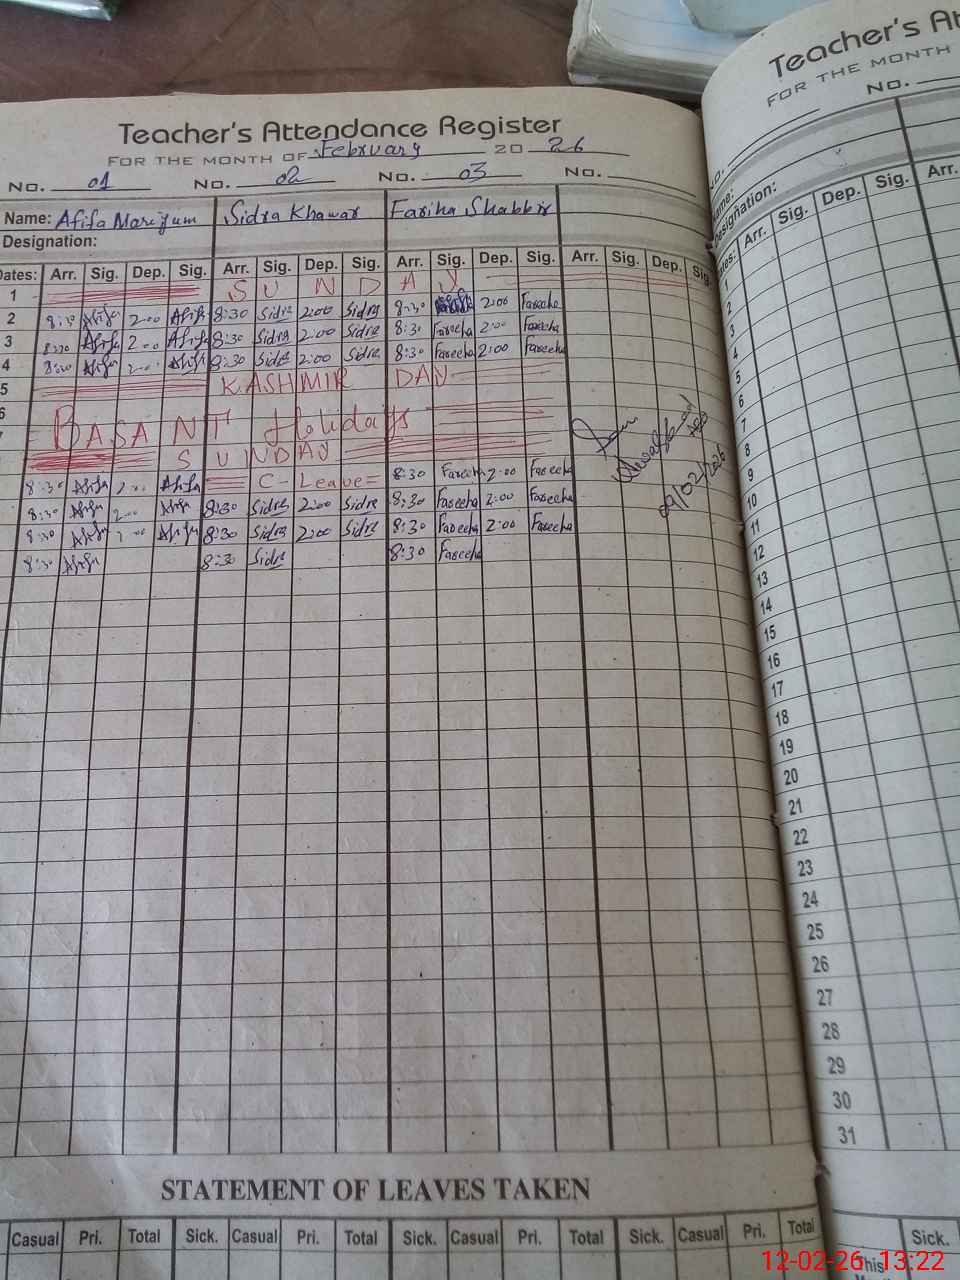 Teacher's Attendance Register
FOR THE MONTH OF February 20 26
No. 01 No. 02 No. 03 No.
Name: Afifa Mariyum Sidra Khawar Fariha Shabbir
Designation:
Dates: Arr. Sig. Dep. Sig. Arr. Sig. Dep. Sig. Arr. Sig. Dep. Sig. Arr. Sig. Dep. Sig.
1 SUNDAY
2 8:30 Afifa 2:00 Afifa 8:30 Sidra 2:00 Sidra 8:30 2:00 Fareeha
3 8:30 Afifa 2:00 Afifa 8:30 Sidra 2:00 Sidra 8:30 Fareeha 2:00 Fareeha
4 8:30 Afifa 2:00 Afifa 8:30 Sidra 2:00 Sidra 8:30 Fareeha 2:00 Fareeha
5 KASHMIR DAY
6 BASANT Holidays
SUNDAY
8:30 Afifa 2:00 Afifa C-Leave 8:30 Fareeha 2:00 Fareeha
8:30 Afifa 2:00 Afifa 8:30 Sidra 2:00 Sidra 8:30 Fareeha 2:00 Fareeha
8:30 Afifa 2:00 Afifa 8:30 Sidra 2:00 Sidra 8:30 Fareeha 2:00 Fareeha
8:30 Afifa 8:30 Sidra 8:30 Fareeha
09/02/2026
STATEMENT OF LEAVES TAKEN
Casual Pri. Total Sick. Casual Pri. Total Sick. Casual Pri. Total Sick. Casual Pri. Total
Teacher's At
FOR THE MONTH
No.
Designation:
Arr. Sig. Dep. Sig. Arr.
1
2
3
4
5
6
7
8
9
10
11
12
13
14
15
16
17
18
19
20
21
22
23
24
25
26
27
28
29
30
31
This Sick.
12-02-26 13:22